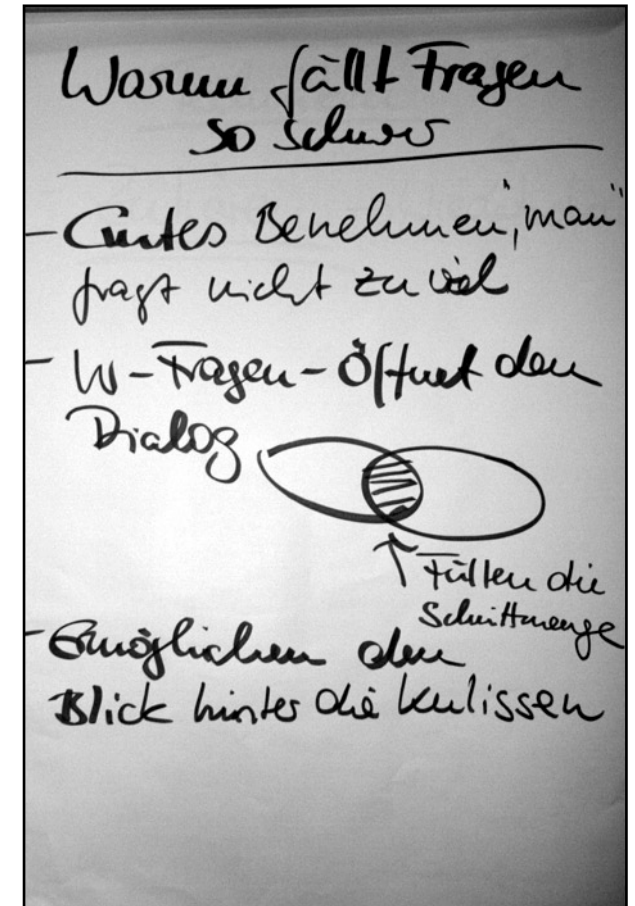 Warum fällt Fragen
so schwer
- Gutes Benehmen, "man"
fragt nicht zu viel
- W-Fragen - Öffnet den
Dialog
Füllen die
Schnittmenge
- Ermöglichen den
Blick hinter die Kulissen